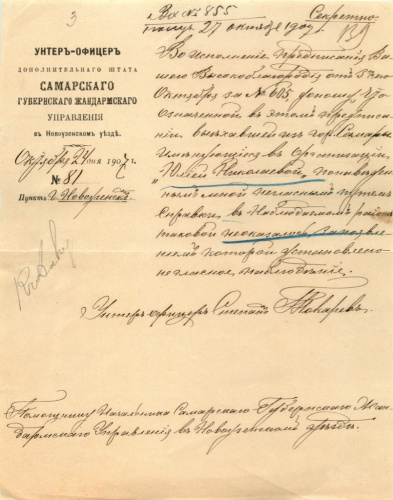 3
Вх № 855
получ. 27 октября 1907 г.
Секретно
УНТЕРЪ-ОФИЦЕРЪ
ДОПОЛНИТЕЛЬНАГО ШТАТА
САМАРСКАГО
ГУБЕРНСКАГО ЖАНДАРМСКАГО
УПРАВЛЕНІЯ
въ Новоузенскомъ уѣздѣ.
Октября 24 дня 1907 г.
№ 81
Пунктъ г. Новоузенскъ
Во исполненіе предписанія Ва-
шего Высокоблагородія отъ
Октября за № 605, доношу, что
означенной въ этомъ предписа-
ніи выехавшей изъ гор. Самары
именующейся въ организаціи,
"Юліей Николаевой", по наведен-
нымъ мной негласнымъ путемъ
справкамъ, въ наблюдаемомъ районѣ
таковой не оказалось, за появле-
ніемъ которой установлено
негласное наблюденіе.
Унтеръ-офицеръ Степанъ Токаревъ.
Помощнику Начальника Самарскаго Губернскаго Жан-
дармскаго Управленія въ Новоузенскомъ уѣздѣ.